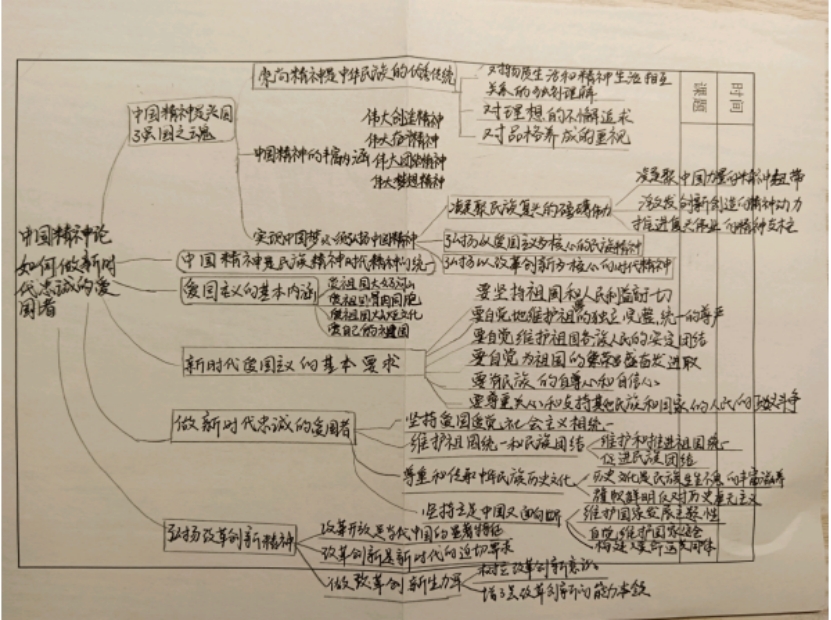 崇尚精神是中华民族的优秀传统
对物质生活和精神生活相互
关系的独到理解
对理想的不懈追求
对品格养成的重视
时间
课题
中国精神是兴国
强国之魂
中国精神的丰富内涵
伟大创造精神
伟大奋斗精神
伟大团结精神
伟大梦想精神
实现中国梦必须弘扬中国精神
凝聚民族复兴的磅礴伟力
凝聚中国力量的精神纽带
激发创新创造的精神动力
推进复兴伟业的精神支柱
弘扬以爱国主义为核心的民族精神
弘扬以改革创新为核心的时代精神
中国精神论
如何做新时
代忠诚的爱
国者
中国精神是民族精神时代精神的统一
爱国主义的基本内涵
爱祖国大好河山
爱祖国骨肉同胞
爱祖国灿烂文化
爱自己的祖国
新时代爱国主义的基本要求
要坚持祖国和人民利益高于一切
要自觉地维护祖国的独立、完整、统一的尊严
要自觉维护祖国各族人民的安定团结
要自觉为祖国的繁荣昌盛奋发进取
要有民族的自尊心和自信心
要尊重关心和支持其他民族和国家的人民的正义斗争
做新时代忠诚的爱国者
坚持爱国爱党社会主义相统一
维护祖国统一和民族团结
维护和推进祖国统一
促进民族团结
尊重和传承中华民族历史文化
历史文化是民族生生不息的丰富滋养
旗帜鲜明反对历史虚无主义
坚持立足中国又面向世界
维护国家发展主体性
自觉维护国家安全
构建人类命运共同体
弘扬改革创新精神
改革开放是当代中国的显著特征
改革创新是新时代的迫切要求
做改革创新生力军
树立改革创新意识
增强改革创新的能力本领